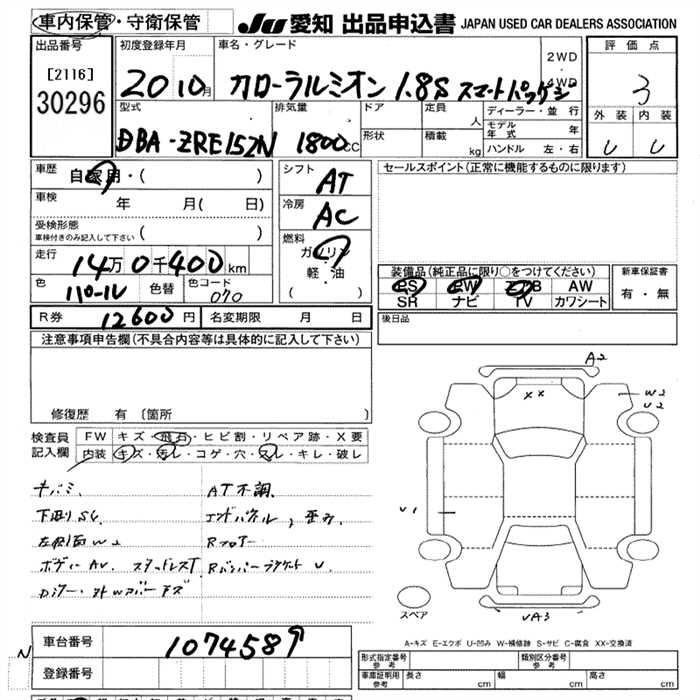 車内保管・守衛保管
JU 愛知 出品申込書 JAPAN USED CAR DEALERS ASSOCIATION
出品番号
[2116]
30296
初度登録年月
20 10月
車名・グレード
カローラルミオン 1.8S スマートパッケージ
2WD
4WD
評価点
3
外装 内装
型式
DBA-ZRE152N
排気量
1800cc
ドア
形状
定員 人
積載 kg
ディーラー・並行
モデル年式 年
ハンドル 左・右
車歴
自家用・( )
車検
年 月( 日)
受検形態
車検付きのみ記入して下さい ( )
走行
14万0千400km
色
パール
色替
色コード
070
シフト
AT
冷房
AC
燃料
ガソリン
軽・油
( )
セールスポイント(正常に機能するものに限ります)
装備品(純正品に限り○をつけてください)
PS PW AW
SR ナビ TV カワシート
新車保証書
有・無
R券 12600円
名変期限 月 日
後日品
注意事項申告欄(不具合内容等は具体的に記入して下さい)
修復歴 有 〔箇所 〕
検査員
記入欄
FW キズ・飛石・ヒビ割・リペア跡・X要
内装 キズ・汚レ・コゲ・穴・スレ・キレ・破レ
キバミ AT不調
下廻りSC エンドパネル,歪み
左側面W2 Rフロアー
ボディーAU スタッドレスT Rバンパーブラケット U
A2
XX
W2
U2
U1
UA3
スペア
A-キズ E-エクボ U-凹み W-補修跡 S-サビ C-腐食 XX-交換済
N
車台番号 1074589
登録番号
形式指定番号 参考
類別区分番号 参考
車庫証明用 参考
長さ cm 幅 cm 高さ cm